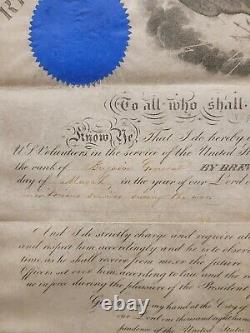 To all who shall
Know Ye, That I do hereby
U.S. Volunteers in the service of the United St
the rank of Brigadier General BY BREV
day of March in the year of our Lord
meritorious services during the war
And I do strictly charge and require
and respect him accordingly and he is to observe
time as he shall receive from me or the future
Officers set over him according to law and the
in force during the pleasure of the President
Gi my hand at the City
our Lord one thousand eight hun
pendence of the United State